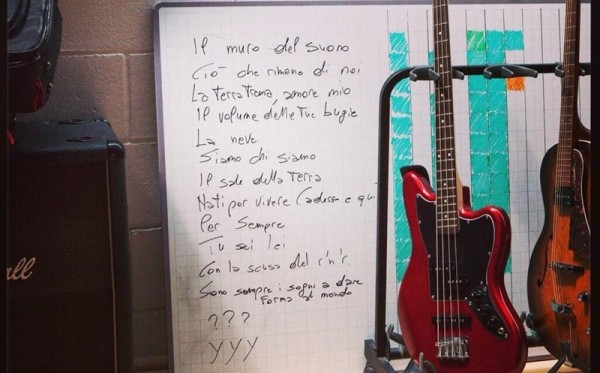 Il muro del suono
Ciò che rimane di noi
La terra trema, amore mio
Il volume delle tue bugie
La neve
Siamo chi siamo
Il sale della terra
Nati per vivere (adesso e qui
Per sempre
Tu sei lei
Con la scusa del r'n'r
Sono sempre i sogni a dare
forma al mondo
? ? ?
Y Y Y